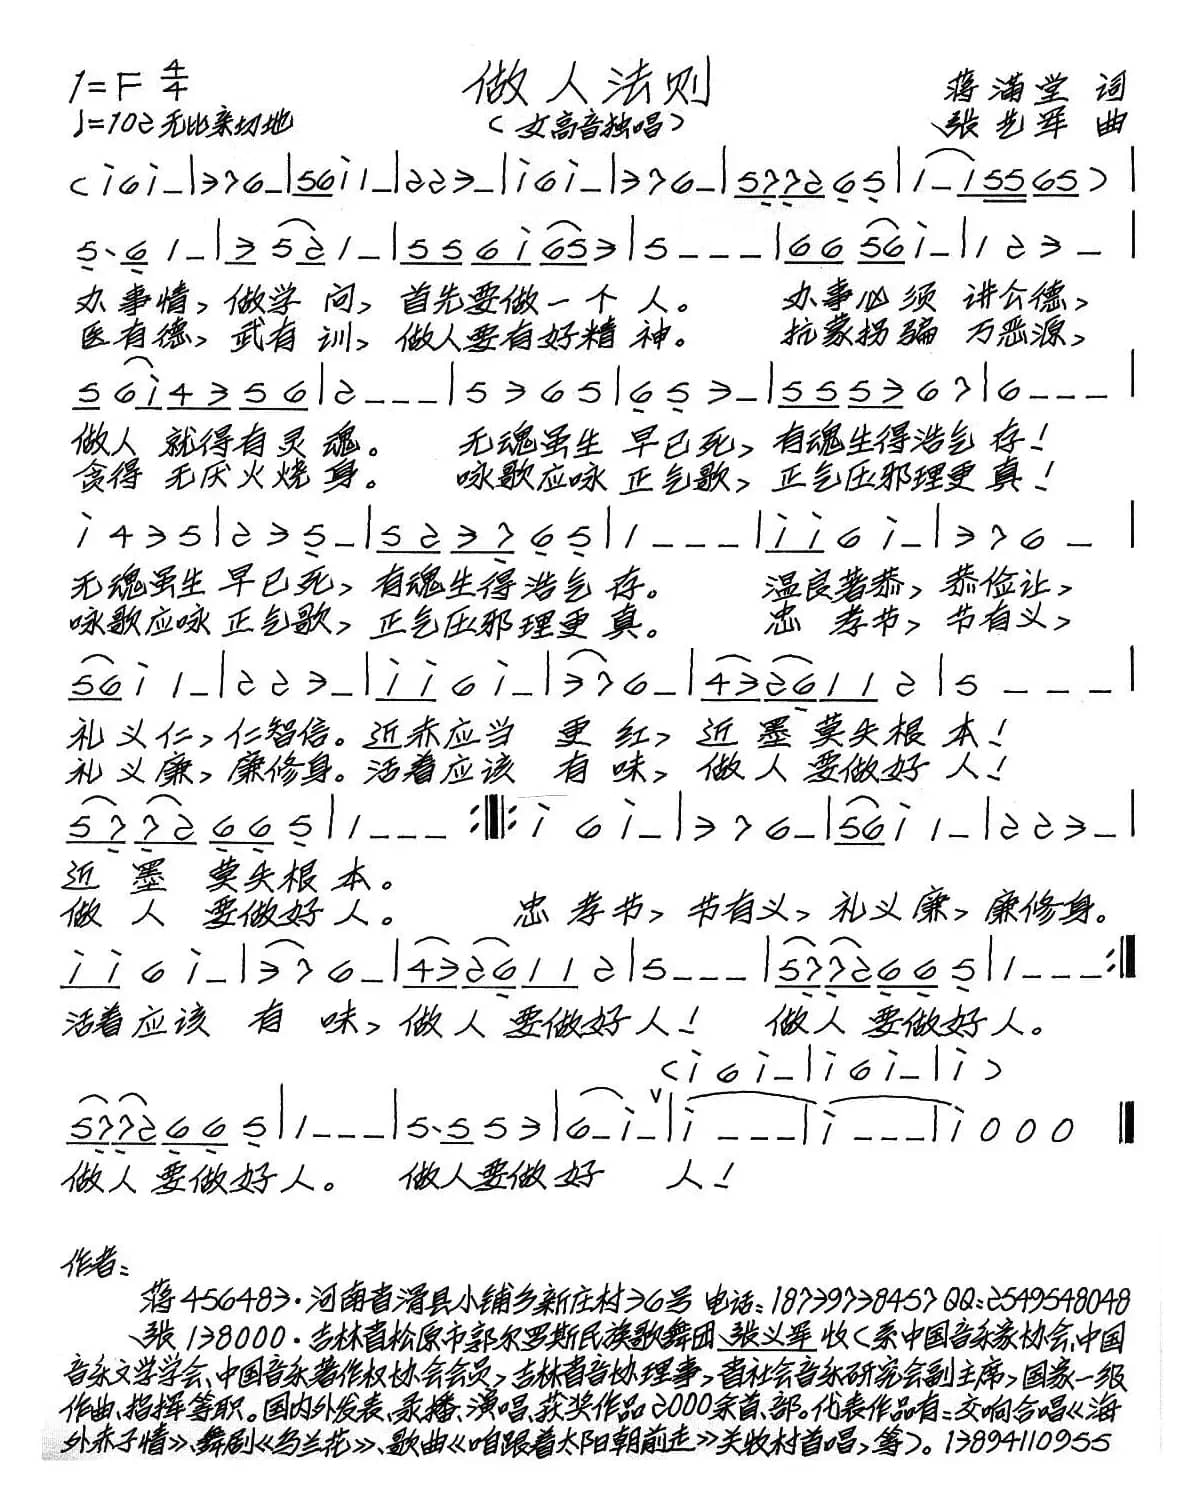 1=F 4/4 做人法则 蒋满堂 词
♩=102 无比亲切地 (女高音独唱) 张艺军 曲
(i 6 i - | 3 7 6 - | 56 i 1 - | 2 2 3 - | i 6 i - | 3 7 6 - | 5772 6 5 | 1 - i 55 65) |
5· 6 1 - | 3 5 2 1 - | 5 5 6 i 65 3 | 5 - - - | 66 56 i - | 1 2 3 - |
办事情,做学 问, 首先要做一个 人。 办事必须 讲公德,
医有德,武有 训, 做人要有好精 神。 抗蒙拐骗 万恶源,
5 6 i 4 3 5 6 | 2 - - - | 5 3 6 5 | 6 5 3 - | 5 5 5 3 6 7 | 6 - - - |
做人 就得有灵 魂。 无魂虽生 早已死,有魂生得浩气 存!
贪得 无厌火烧 身。 咏歌应咏 正气歌,正气压邪理更 真!
i 4 3 5 | 2 3 5 - | 5 2 3 7 6 5 | 1 - - - | i i 6 i - | 3 7 6 - |
无魂虽生 早已死,有魂生得 浩气 存。 温良著恭,恭俭让,
咏歌应咏 正气歌,正气压邪 理更 真。 忠 孝节,节有义,
56 i 1 - | 2 2 3 - | i i 6 i - | 3 7 6 - | 43 26 1 1 2 | 5 - - - |
礼义仁,仁智信。近赤应当 更 红, 近 墨 莫失根 本!
礼义廉,廉修身。活着应该 有 味, 做 人 要做好 人!
57 72 6 6 5 | 1 - - - :||: i 6 i - | 3 7 6 - | 56 i 1 - | 2 2 3 - |
近 墨 莫失根 本。
做 人 要做好 人。 忠 孝节,节有义,礼义廉,廉修身。
i i 6 i - | 3 7 6 - | 43 26 1 1 2 | 5 - - - | 57 72 6 6 5 | 1 - - - :||
活着应该 有 味,做人 要做好人! 做人 要做好人。
(i 6 i - | i 6 i - | i )
57 72 6 6 5 | 1 - - - | 5· 5 5 3 | 6 - i - ∨ | i - - - | i - - - | i 0 0 0 ||
做人 要做好人。 做人要做好 人!
作者:
蒋456483·河南省滑县小铺乡新庄村36号 电话:18739738457 QQ:2549548048
张138000·吉林省松原市郭尔罗斯民族歌舞团 张义军 收(系中国音乐家协会、中国
音乐文学学会、中国音乐著作权协会会员,吉林省音协理事,省社会音乐研究会副主席,国家一级
作曲、指挥等职。国内外发表、录播、演唱、获奖作品2000余首、部。代表作品有:交响合唱《海
外赤子情》、舞剧《乌兰花》、歌曲《咱跟着太阳朝前走》关牧村首唱,等)。13894110955